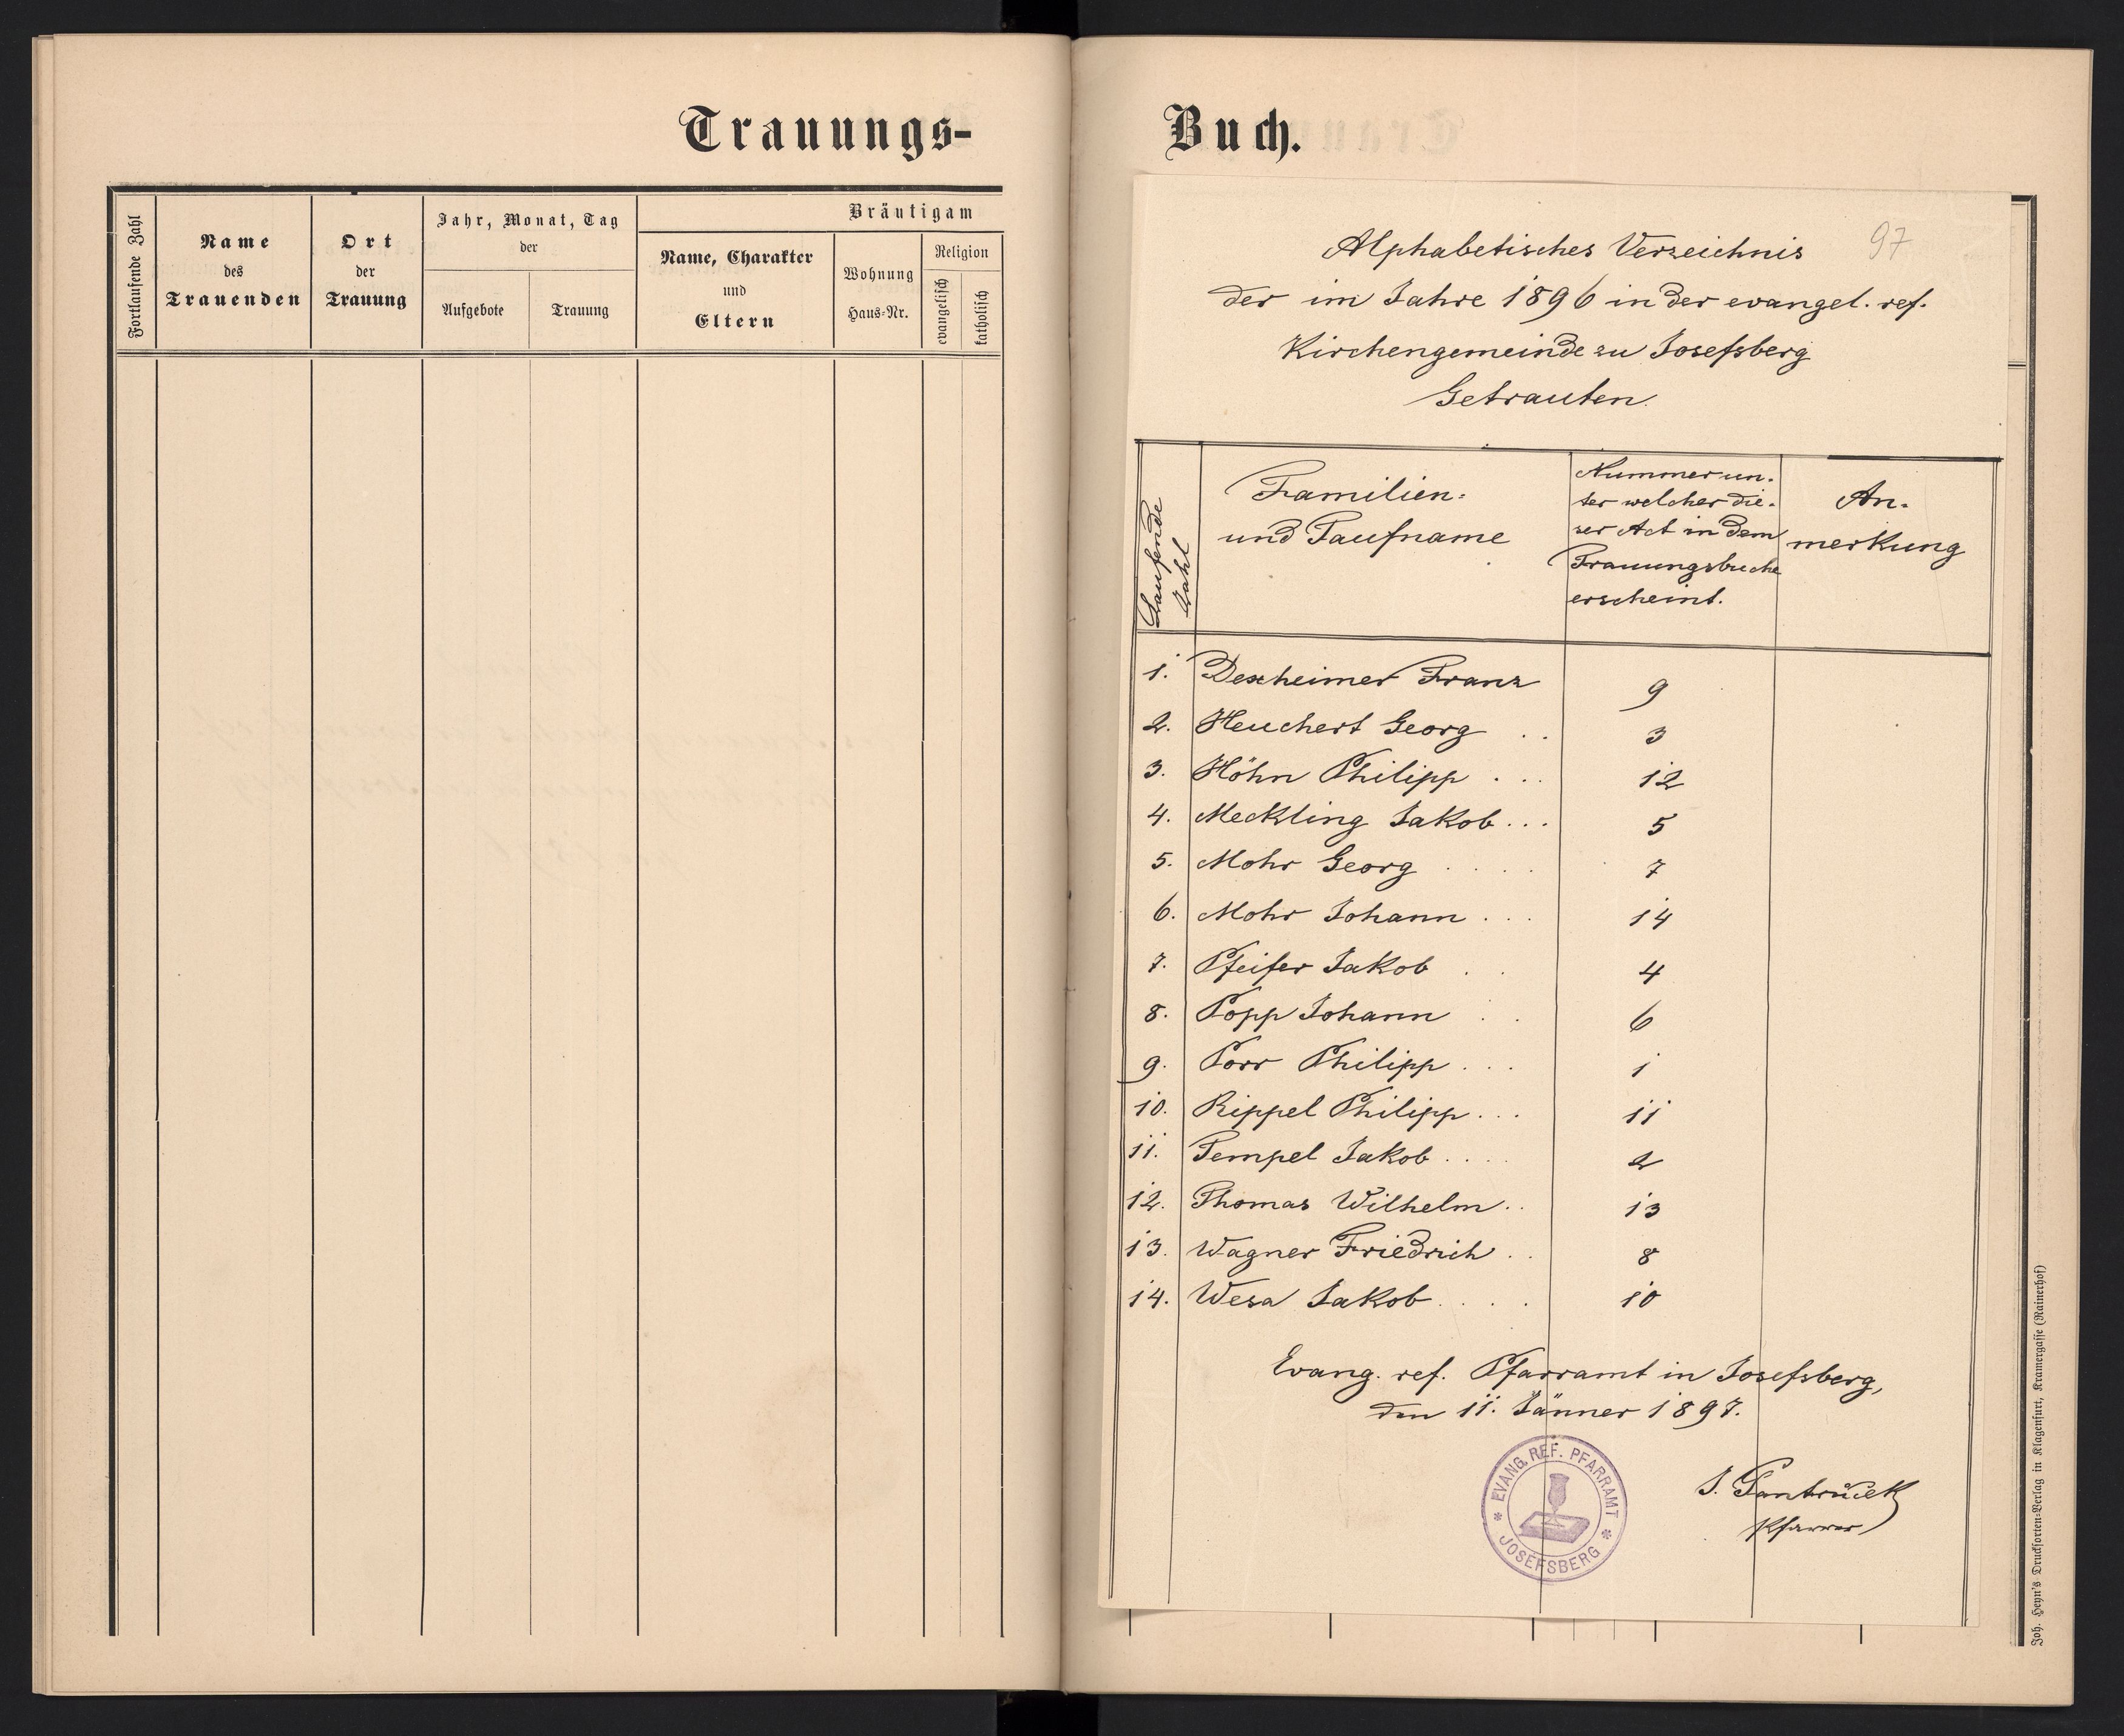 Trauungs-
Fortlaufende Zahl
Name
des
Trauenden
Ort
der
Trauung
Jahr, Monat, Tag
der
Aufgebote
Trauung
Bräutigam
Name, Charakter
und
Eltern
Wohnung
Haus-Nr.
Religion
evangelisch
katholisch
Buch.
97
Alphabetisches Verzeichnis
der im Jahre 1896 in der evangel. ref.
Kirchengemeinde zu Josefsberg
Getrauten.
Laufende
Zahl
Familien-
und Taufname
Nummer un-
ter welcher die-
ser Act in dem
Trauungsbuche
erscheint.
An-
merkung
1. Dexheimer Franz 9
2. Heuchert Georg . . 3
3. Höhn Philipp . . . 12
4. Meckling Jakob . . . 5
5. Mohr Georg . . . . 7
6. Mohr Johann . . . 14
7. Pfeifer Jakob . . 4
8. Popp Johann . . 6
9. Porr Philipp . . . 1
10. Rippel Philipp . . . 11
11. Tempel Jakob . . . . 2
12. Thomas Wilhelm . . 13
13. Wagner Friedrich . . 8
14. Wesa Jakob . . . . 10
Evang. ref. Pfarramt in Josefsberg,
den 11. Jänner 1897.
EVANG. REF. PFARRAMT
* JOSEFSBERG *
J.
Pfarrer
Joh. Heyn's Drucksorten-Verlag in Klagenfurt, Kramergasse (Rainerhof)